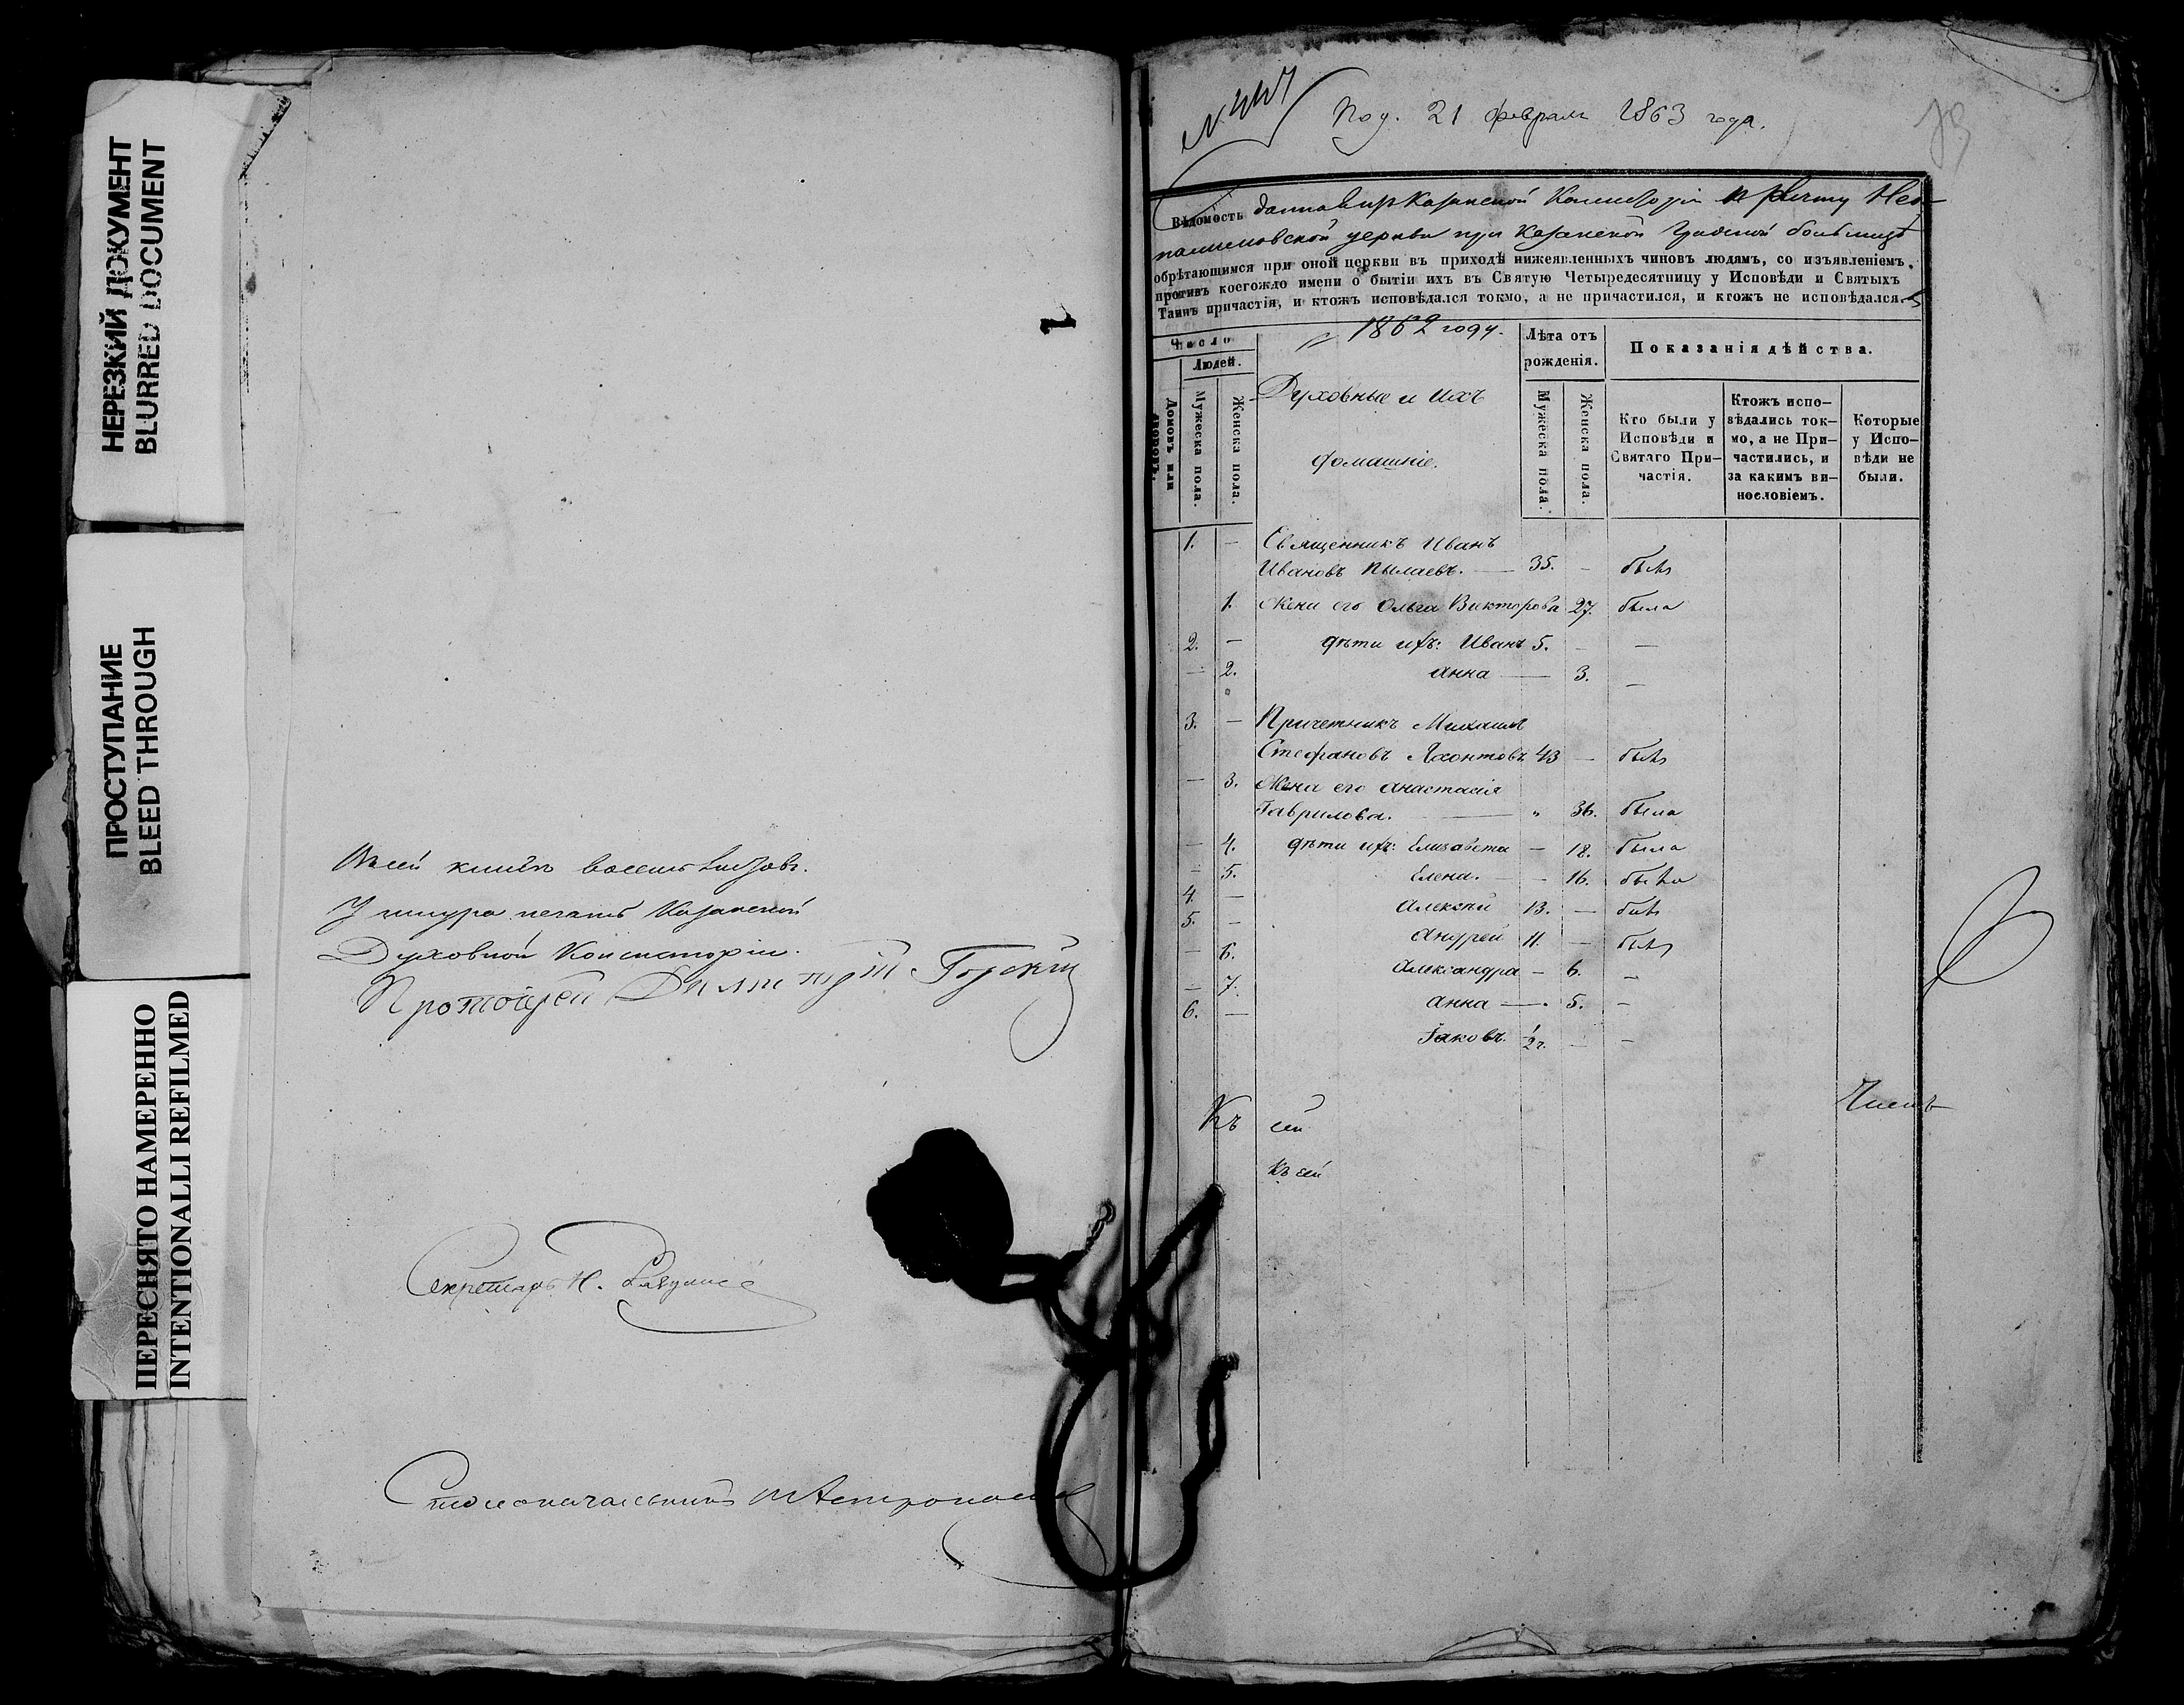 НЕРЕЗКИЙ ДОКУМЕНТ
BLURRED DOCUMENT
ПРОСТУПАНИЕ
BLEED THROUGH
ПЕРЕСНЯТО НАМЕРЕННО
INTENTIONALLI REFILMED
Въ сей книгѣ восемь листовъ.
У шнура печать Казанской
Духовной Консисторіи.
Протоіерей
Секретарь Н.
Столоначальникъ
Под. 21 февраля 1863 года.
Вѣдомость данная изъ Казанской Консисторіи причту
церкви при Казанской Градской больницѣ
обрѣтающимся при оной церкви въ приходѣ нижеявленныхъ чиновъ людямъ, со изъявленіемъ,
противъ коегождо имени о бытіи ихъ въ Святую Четыредесятницу у Исповѣди и Святыхъ
Таинъ причастія, и ктожъ исповѣдался токмо, а не причастился, и ктожъ не исповѣдался
1862 году.
Число
Людей.
Домовъ или дворовъ.
Мужеска пола.
Женска пола.
Духовные и ихъ
домашніе.
Лѣта отъ
рожденія.
Мужеска пола.
Женска пола.
Показанія дѣйства.
Кто были у
Исповѣди и
Святаго При-
частія.
Ктожъ испо-
вѣдались ток-
мо, а не При-
частились, и
за какимъ ви-
нословіемъ.
Которые
у Испо-
вѣди не
были.
1. — Священникъ Иванъ
Ивановъ Пылаевъ. — 35. — былъ
1. Жена его Ольга Викторова 27. была
2. — дѣти ихъ: Иванъ 5. — —
— 2. Анна — 3. —
3. — Причетникъ Михаилъ
Стефановъ Яхонтовъ 43 — былъ
— 3. Жена его Анастасія
Гаврилова. — " 36. была
— 4. дѣти ихъ: Елизавета — 18. была
— 5. Елена. — 16. была
4. — Алексѣй 13. — былъ
5. — Андрей 11. — былъ
— 6. Александра — 6. —
— 7. Анна — 5. —
6. — Іаковъ. — —
Къ сей
Къ сей